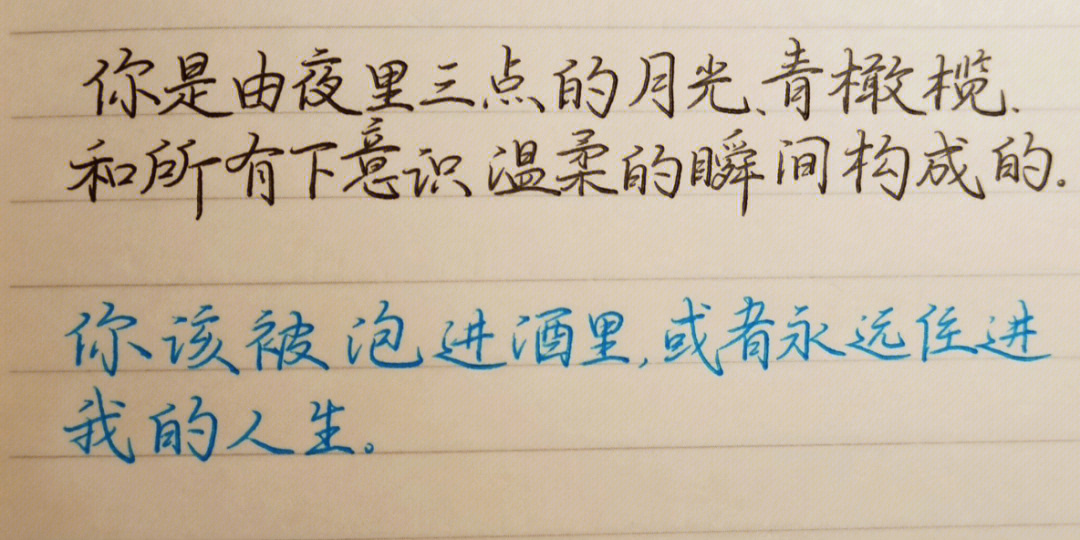 你是由夜里三点的月光、青橄榄、
和所有下意识温柔的瞬间构成的.
你该被泡进酒里,或者永远住进
我的人生。